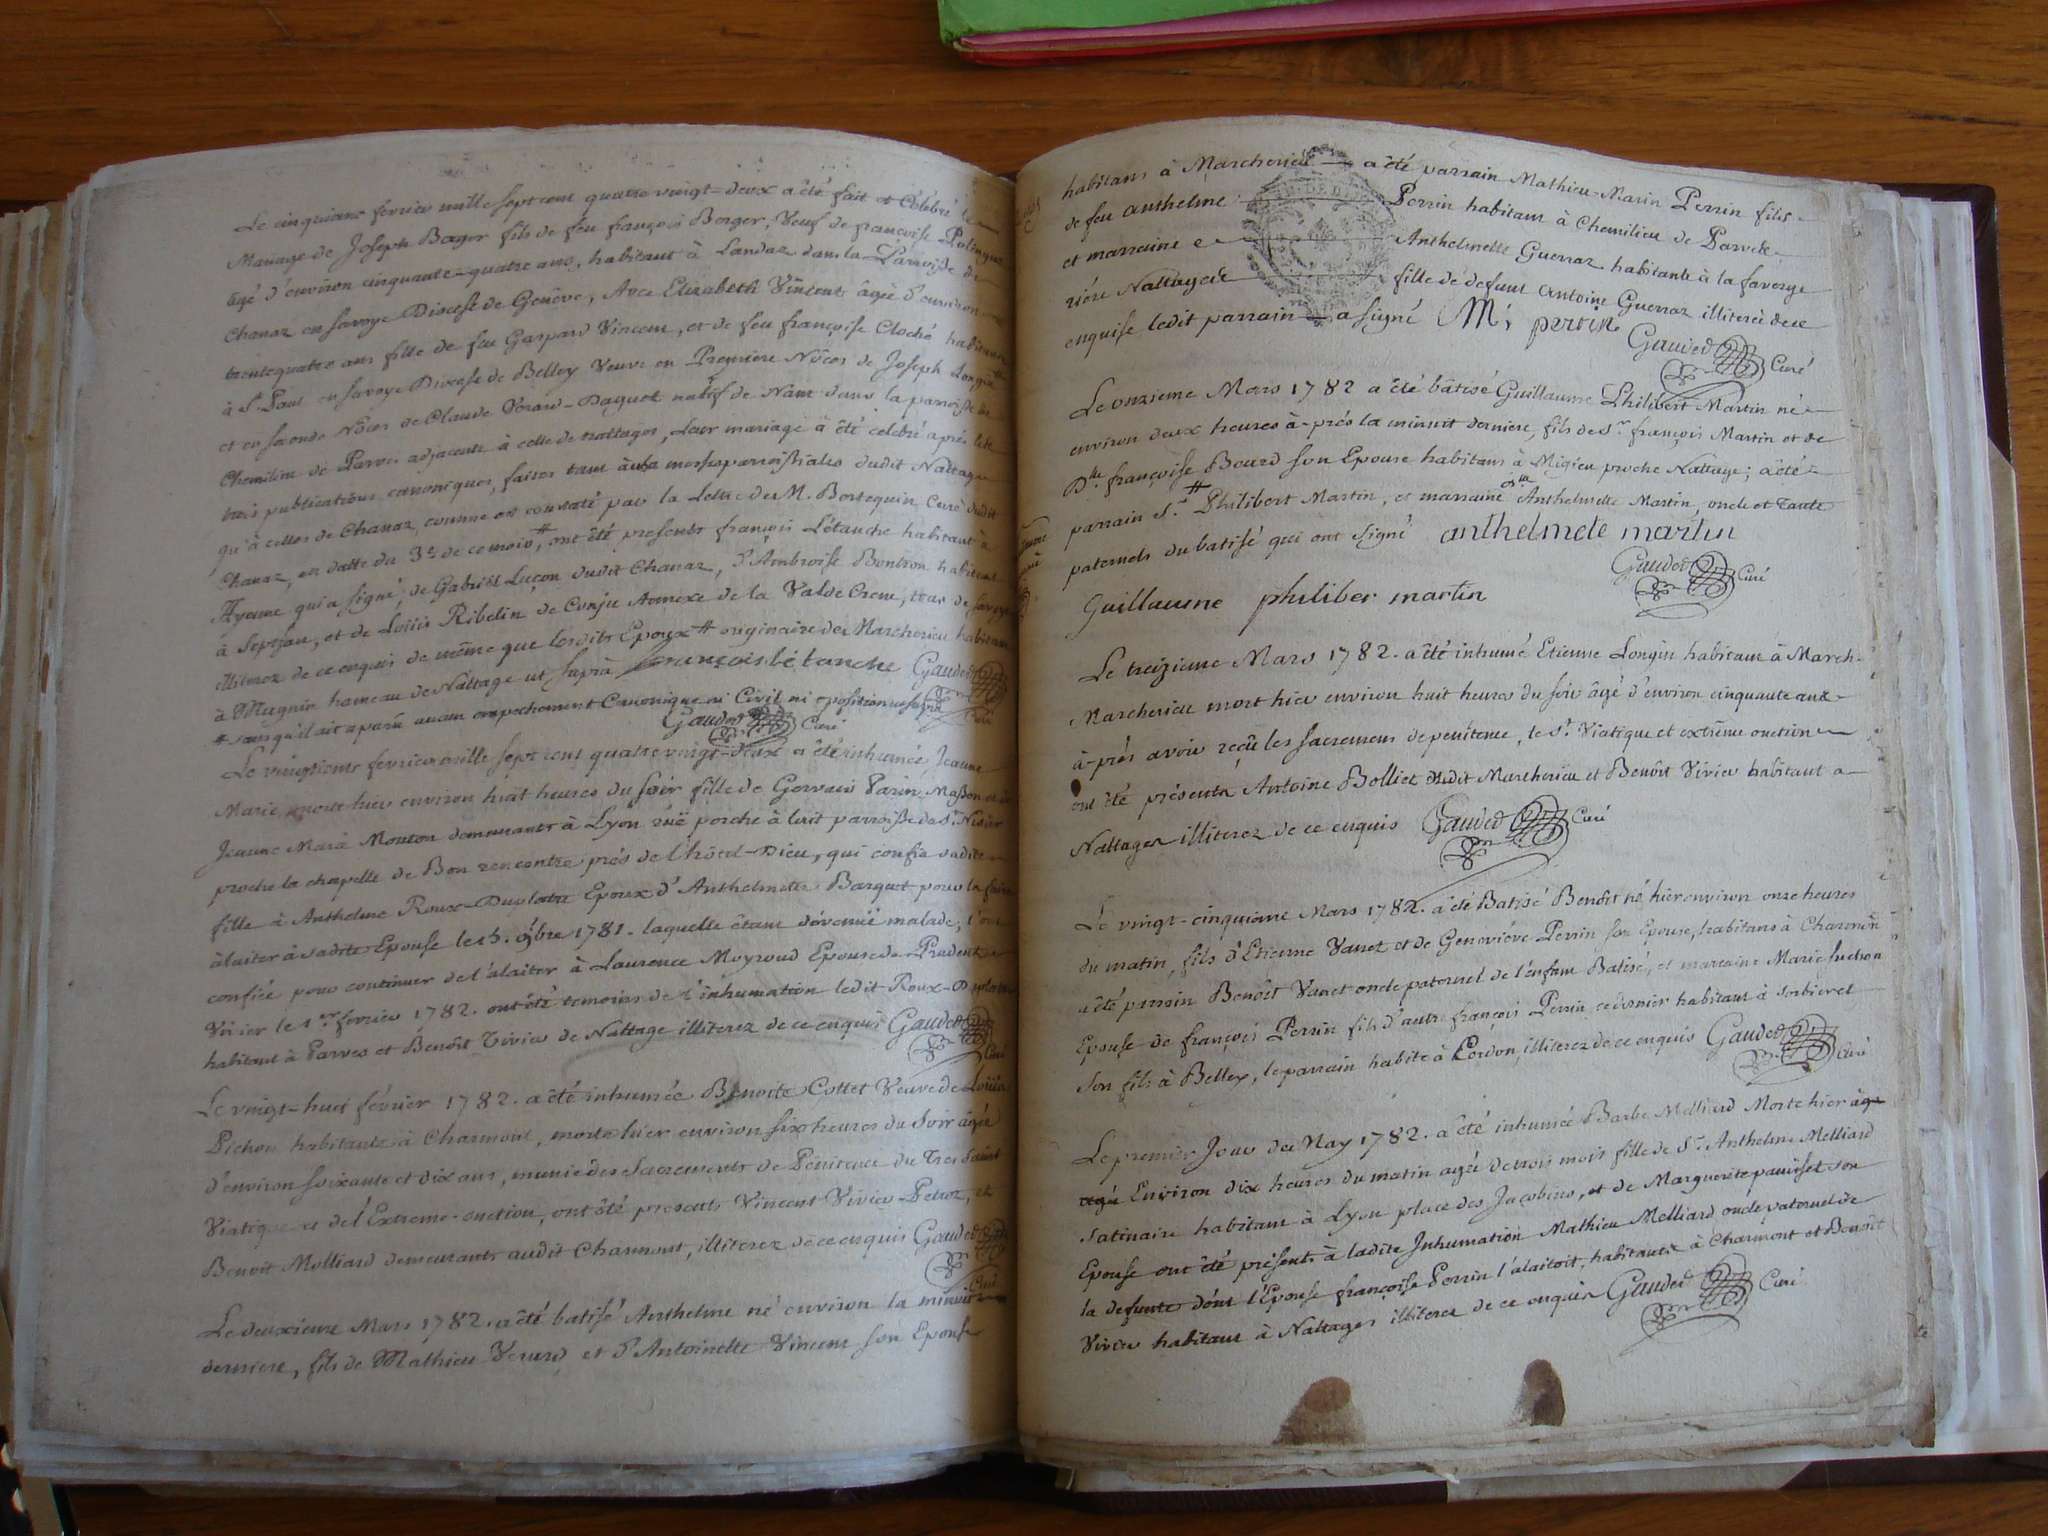 Le cinquieme fevrier mille sept cent quatre vingt-deux a été fait et Célébré le
Mariage de Joseph Borger fils de feu françois Borger, Veuf de francoise
agé d'environ cinquante-quatre ans, habitant à Landar dans la Parroisse de
Chanaz en Savoye Diocese de Genêve, Avec Elizabeth Vincent âgée d'environ
trente quatre ans fille de feu Gaspard Vincent, et de feu françoise Cloché habitante
à St. Paul en Savoye Diocese de Belley Veuve en Premiere Nôces de Joseph Longin
et en seconde Nôces de Claude Verard-Daguet natif de Nant dans la parroisse de
Chemilieu de Parves adjacente à celle de nattages, Leur mariage à été celebré après les
trois publications canoniques, faites tant aux messes parroissiales dudit Nattage
qu'à celles de Chanaz, comme est constaté par la Lettre de M. Bortequin Curé dudit
Chanaz, en datte du 3e de ce mois #, ont été presents françois Létanche habitant à
Ayenne qui a signé, de Gabriël Luçon dudit Chanaz, d'Ambroise Bontron habitant
à Septfau, et de Loüis Ribelin de Conju Annexe de la Valde Crene, tous de Savoye
illiterez de ce enquis de même que lesdits Epoux # originaire de Marcherieu habitant
à Magnin hameau de Nattage ut suprà françois létanche Gauded
# sans qu'il ait aparu aucun empechement Canonique ni Civil ni oposition ut supra Curé
Gauded Curé
Le vingtieme fevrier mille sept cent quatre vingt-deux a été inhumée, Jeanne
Marie, morte hier environ huit heures du soir fille de Gervais Parin Maßon et de
Jeanne Mará Mouton demeurants à Lyon rüe porche à lait parroisse de St. Nisier
proche la chapelle de Bon rencontre prés de l'hôtel-Dieu, qui confia sadite
fille à Anthelme Roux-Duplatre Epoux d'Anthelmette Barquet pour la faire
àlaiter à sadite Epouse le 15. 9bre 1781. laquelle étant dévenüe malade, l'ont
confiée pour continuer de l'alaiter à Laurence Moyroud Epouse de Prudent
Vivier le 1er fevrier 1782. ont été temoins de l'inhumation ledit Roux-Duplatre
habitant à Parves et Benoît Vivier de Nattage illiterez de ce enquis Gauded
Curé
Le vingt-huit février 1782. a été inhumée Benoite Cottet Veuve de Loüis
Pichon habitante à Charmont, morte hier environ six heures du Soir âgée
d'environ soixante et dix ans, munie des Sacrements de Pénitence du Tres Saint
Viatique et de l'Extreme-onction, ont été presents Vincent Vivier-Petroz, et
Benoit Melliard demeurants audit Charmont, illiterez de ce enquis Gauded
Curé
Le deuxieme Mars 1782. a été batisé Anthelme né environ la minuit
derniere, fils de Mathieu Verard et d'Antoinette Vincent son Epouse
habitans à Marcherieu a été parrain Mathieu-Marin Perrin fils
de feu anthelme Perrin habitant à Chemilieu de Parvek
et marraine Anthelmette Guerraz habitante à la faverge
riére Nattage fille de defunt Antoine Guerraz illiterée de ce
enquise ledit parrain a signé M, perrin
Gauded Curé
Le onzieme Mars 1782 a été bâtisé Guillaume Philibert Martin né
environ deux heures à-prés la minuit derniere, fils de Sr. françois Martin et de
Dlle. françoise Bourd son Epouse habitans à Migieu proche Nattage; a été
parrain Sr. # Philibert Martin, et marraine Dlle Anthelmette Martin, oncle et Tante
paternels du batisé qui ont signé anthelmete martin
Gauded Curé
Guillaume philiber martin
Le treizieme Mars 1782. a été inhumé Etienne Longin habitant à March-
Marcherieu mort hier environ huit heures du soir âgé d'environ cinquante ans
à-prés avoir reçû les sacremens de penitence, le St. Viatique et extrême onction
ont été présents Antoine Bolliet dudit Marcherieu et Benôit Vivier habitant a
Nattages illiterez de ce enquis Gauded Curé
Le vingt-cinquieme Mars 1782. a été Batisé Benoît né hier environ onze heures
du matin, fils d'Etienne Vanet et de Geneviéve Perrin son Epouse, habitans à Charmon
a été parrain Benôit Vanet oncle paternel de l'enfant Batisé, et marraine Marie suchon
Epouse de françois Perrin fils d'autre françois Perrin ce dernier habitant à Sorbieret
son fils à Belley, le parrain habite à Cordon, illiterez de ce enquis Gauded
Curé
Le premier Jour de May 1782. a été inhumée Barbe Melliard Morte hier age
agée Environ dix heures du matin agée de trois mois fille de Sr. Anthelme Melliard
Satinaire habitant à Lyon place des Jacobins, et de Marguerite pauisset son
Epouse ont été présents à ladite Inhumation Mathieu Melliard oncle paternel de
la defunte dont l'Epouse françoise Perrin l'alaitoit, habitants à Charmont et Benoît
Vivier habitant à Nattages illiterez de ce enquis Gauded Curé